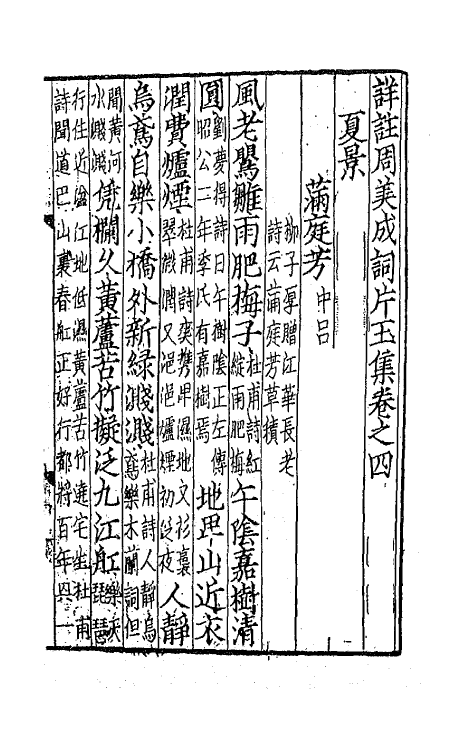 詳註周美成詞片玉集卷之四
夏景
滿庭芳中呂
柳子厚贈江華長老
詩云滿庭芳草積
風老鶯雛雨肥梅子杜甫詩紅
綻雨肥梅午陰嘉樹清
圓劉夢得詩日午樹陰正左傳
昭公二年季氏有嘉樹焉地卑山近衣
潤費爐煙杜甫詩奕奕卑濕地文衫裛
翠微潤又浥浥爐煙初泛夜人靜
烏鳶自樂小橋外新綠濺濺杜甫詩人靜烏
鳶樂木蘭詞但
聞黃河
水濺濺凭欄久黃蘆苦竹擬泛九江舡樂天
琵琶
行住近湓江地低濕黃蘆苦竹遶宅生杜甫
詩聞道巴山裏春舡正好行都將百年興一